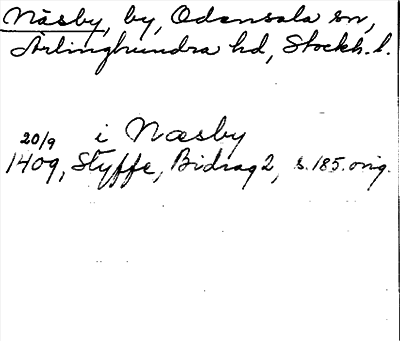 Näsby, by, Odensala sn,
Ärlinghundra hd, Stockh. l.
20/9 i Næsby
1409, Styffe, Bidrag 2, s. 185. orig.